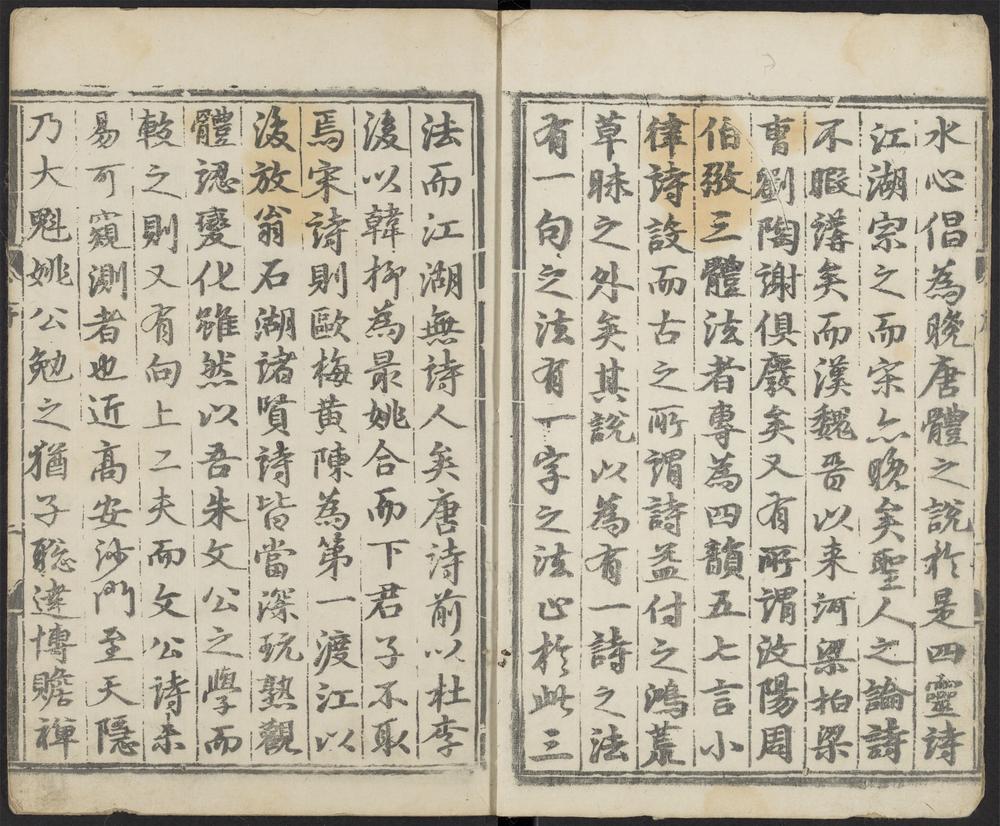 水心倡為晚唐體之說於是四靈詩
江湖宗之而宋亦晚矣聖人之論詩
不暇講矣而漢魏晋以来河梁柏梁
曹劉陶謝俱廢矣又有所謂汶陽周
伯弜三體法者專為四韻五七言小
律詩設而古之所謂詩盖付之鴻荒
草昧之外矣其說以為有一詩之法
有一句之法有一字之法止於此三
法而江湖無詩人矣唐詩前以杜李
後以韓柳為最姚合而下君子不取
焉宋詩則歐梅黄陳為第一渡江以
後放翁石湖諸賢詩皆當深玩熟觀
體認變化雖然以吾朱文公之學而
較之則又有向上工夫而文公詩未
易可窺測者也近髙安沙門至天隱
乃大魁姚公勉之猶子聡達博贍禅